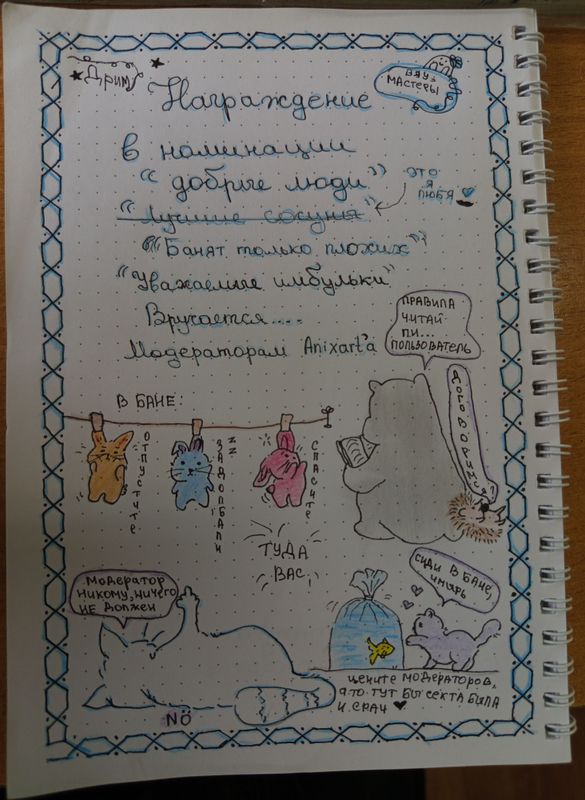 Дрим
ВАУ,
МАСТЕРЫ
Награждение
в номинации
"добрые люди"
ЭТО
Я
ЛЮБЯ
"Лучшие сосуня"
"Банят только плохих"
"Уважаемые имбульки"
Вручается....
Модераторам Anixart'a
ПРАВИЛА
ЧИТАЙ
ПИ...
ПОЛЬЗОВАТЕЛЬ
ДОГОВОРИМСЯ
В БАНЕ:
ОТПУСТИТЕ
ZZ
ЗАДОЛБАЛИ
СПАСИТЕ
ТУДА
ВАС
МОДЕРАТОР
НИКОМУ, НИЧЕГО
НЕ ДОЛЖЕН
NÖ
СИДИ В БАНЕ,
ЦЕНИТЕ МОДЕРАТОРОВ,
А ТО ТУТ БЫ СЕКТА БЫЛА
И СРАЧ